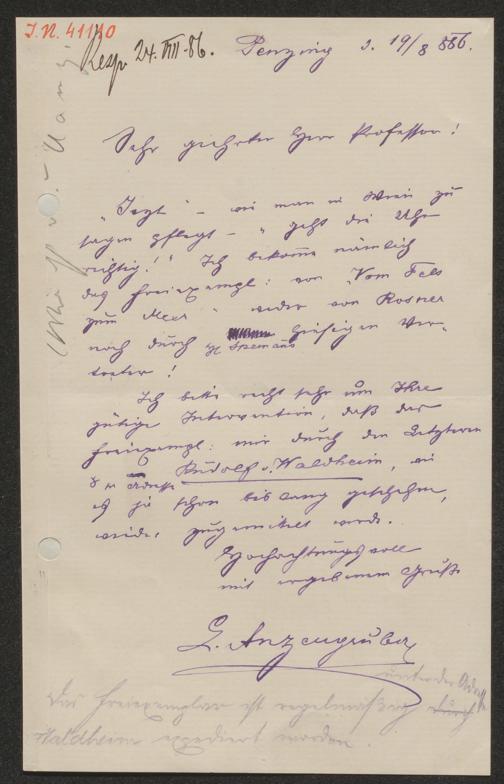 J.N. 41110
Resp 24. VIII. 86.
Penzing d. 19/8 886.
Sehr geehrter Herr Professor!
"Jezt" – wie man in Wien zu
sagen pflegt – "geht die Uhr
richtig!" Ich bekomme nämlich
das Freiexempl: von "Vom Fels
zum Meer" weder von Rosner
noch durch Spemans hiesigen Ver-
treter!
Ich bitte recht sehr um Ihre
gütige Intervention, daß das
Freiexempl: mir durch den Letzteren
Adresse Rudolf v. Waldheim, wie
es ja schon bislang geschehen,
wieder zugemittelt werde.
Hochachtungsvoll
mit ergebenem Gruße
L. Anzengruber
unter der Adresse
Das Freiexemplar ist regelmäßig durch
Waldheim expediert worden.